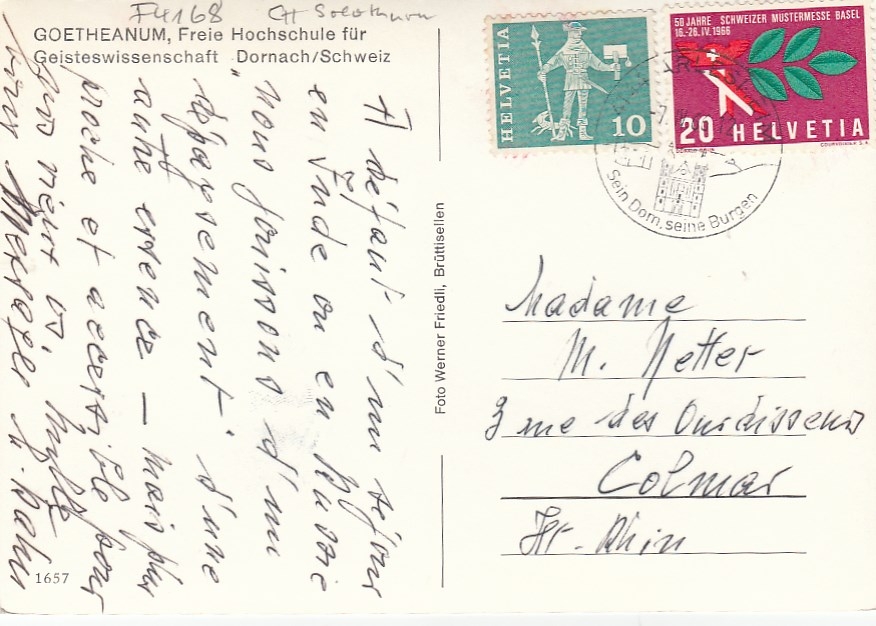 F4168 CH Solothurn
GOETHEANUM, Freie Hochschule für
Geisteswissenschaft Dornach/Schweiz
A défaut d'un séjour
en Inde ou en Russie
nous jouissons d'un
"dépaysement" d'une
autre essence — mais plus
proche et accessible pour
qui vient ici.
1657
Foto Werner Friedli, Brüttisellen
HELVETIA
10
50 JAHRE SCHWEIZER MUSTERMESSE BASEL
16.-26.IV.1966
20 HELVETIA
COURVOISIER S.A.
Sein Dom, seine Burgen
Madame
M. Netter
3 rue des Ourdisseurs
Colmar
Ht. Rhin